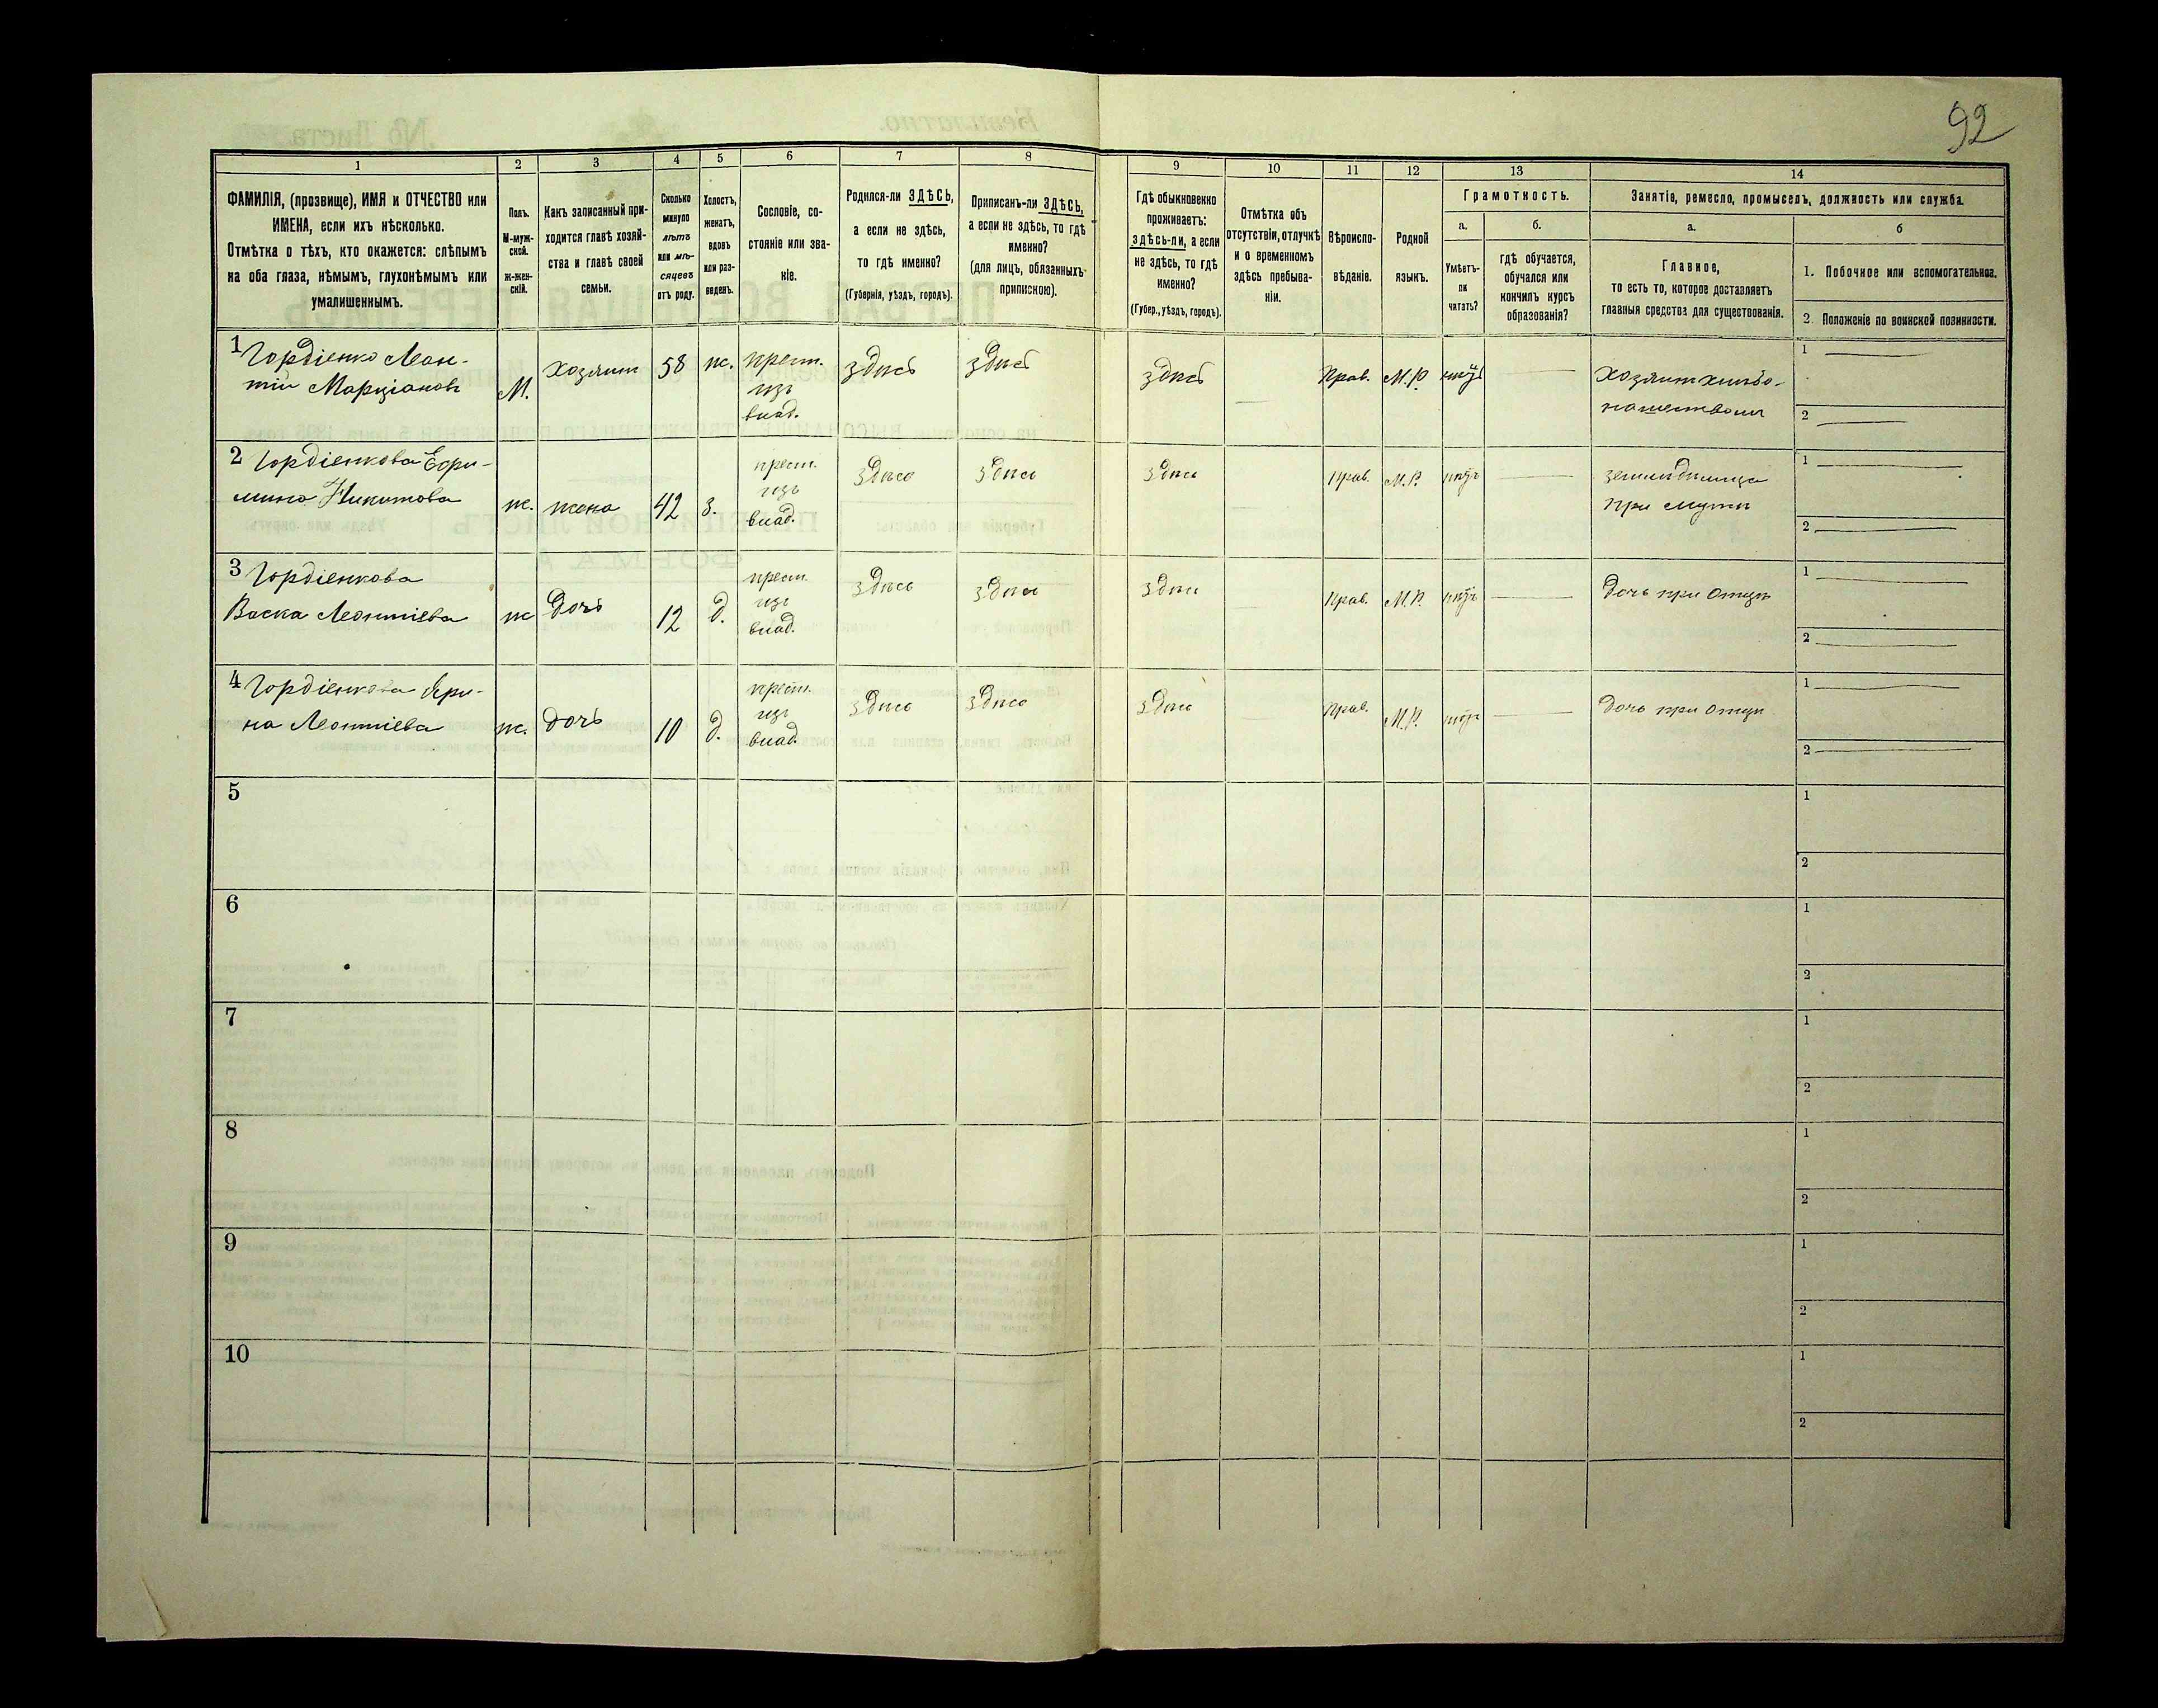 92
1
2
3
4
5
6
7
8
9
10
11
12
13
14
ФАМИЛІЯ, (прозвище), ИМЯ и ОТЧЕСТВО или
ИМЕНА, если ихъ нѣсколько.
Отмѣтка о тѣхъ, кто окажется: слѣпымъ
на оба глаза, нѣмымъ, глухонѣмымъ или
умалишеннымъ.
Полъ.
М-муж-
ской.
ж-жен-
скій.
Какъ записанный при-
ходится главѣ хозяй-
ства и главѣ своей
семьи.
Сколько
минуло
лѣтъ
или мѣ-
сяцевъ
отъ роду.
Холостъ,
женатъ,
вдовъ
или раз-
веденъ.
Сословіе, со-
стояніе или зва-
ніе.
Родился-ли ЗДѢСЬ,
а если не здѣсь,
то гдѣ именно?
(Губернія, уѣздъ, городъ).
Приписанъ-ли ЗДѢСЬ,
а если не здѣсь, то гдѣ
именно?
(для лицъ, обязанныхъ
припискою).
Гдѣ обыкновенно
проживаетъ:
здѣсь-ли, а если
не здѣсь, то гдѣ
именно?
(Губер., уѣздъ, городъ).
Отмѣтка объ
отсутствіи, отлучкѣ
и о временномъ
здѣсь пребыва-
ніи.
Вѣроиспо-
вѣданіе.
Родной
языкъ.
Грамотность.
а.
Умѣетъ-
ли
читать?
б.
гдѣ обучается,
обучался или
кончилъ курсъ
образованія?
Занятіе, ремесло, промыселъ, должность или служба.
а.
Главное,
то есть то, которое доставляетъ
главныя средства для существованія.
б
1. Побочное или вспомогательное.
2. Положеніе по воинской повинности.
1 Гордіенко Леон-
тій Марціановъ
М. Хозяинъ 58 ж. крест.
изъ
влад.
здѣсь здѣсь здѣсь Прав. М.Р. нѣтъ
Хозяинъ хлѣбо-
пашествомъ
1
2
2 Гордіенкова Ефи-
Никитова
ж. жена 42 з. крест.
изъ
влад.
здѣсь здѣсь здѣсь Прав. М.Р. нѣтъ
при мужѣ
1
2
3 Гордіенкова
Васка Леонтіева
ж дочь 12 д. крест.
изъ
влад.
здѣсь здѣсь здѣсь Прав. М.Р. нѣтъ
Дочь при отцѣ
1
2
4 Гордіенкова Ири-
на Леонтіева
ж. дочь 10 д. крест.
изъ
влад.
здѣсь здѣсь здѣсь Прав. М.Р. нѣтъ
Дочь при отцѣ
1
2
5
1
2
6
1
2
7
1
2
8
1
2
9
1
2
10
1
2